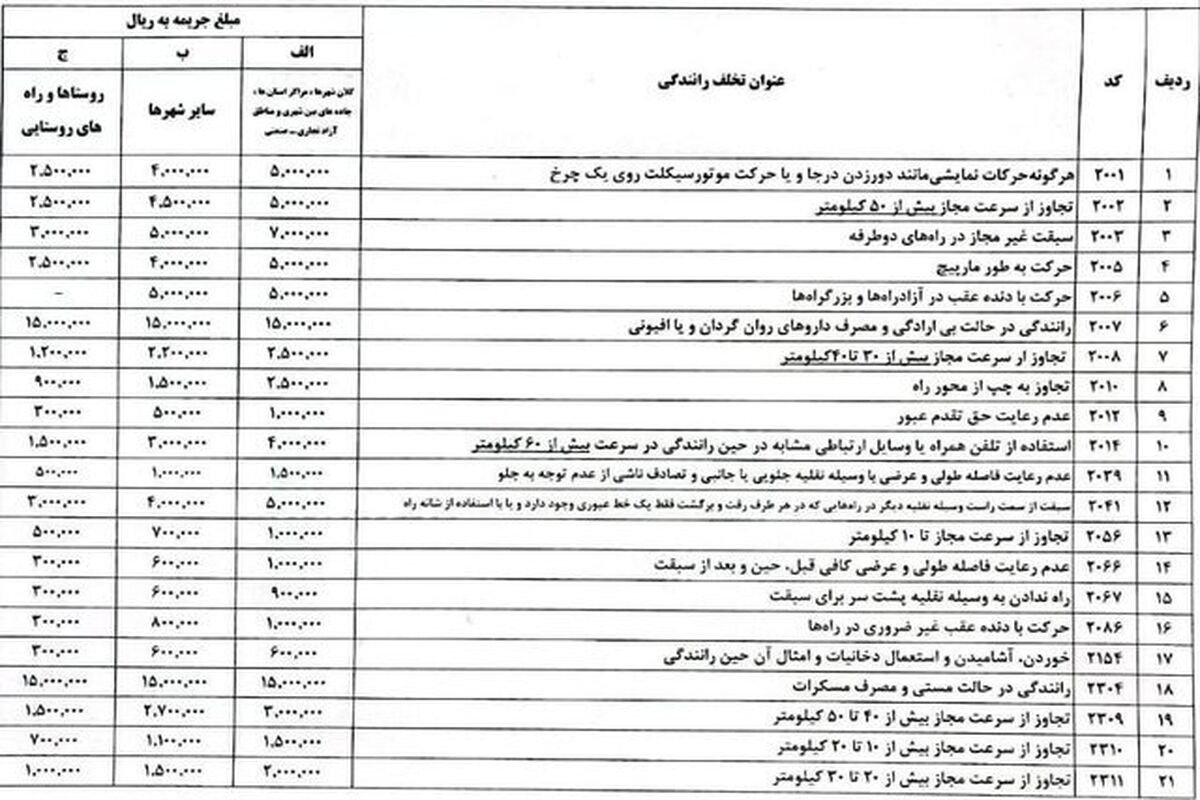 ردیف کد عنوان تخلف رانندگی مبلغ جریمه به ریال
الف ب ج
کلان شهرها ، مراکز استان ها ، جاده های بین شهری و مناطق آزاد تجاری ـ صنعتی
سایر شهرها
روستاها و راه های روستایی
۱ ۲۰۰۱ هرگونه حرکات نمایشی مانند دورزدن درجا و یا حرکت موتورسیکلت روی یک چرخ ۵.۰۰۰.۰۰۰ ۴.۰۰۰.۰۰۰ ۲.۵۰۰.۰۰۰
۲ ۲۰۰۲ تجاوز از سرعت مجاز بیش از ۵۰ کیلومتر ۵.۰۰۰.۰۰۰ ۴.۵۰۰.۰۰۰ ۲.۵۰۰.۰۰۰
۳ ۲۰۰۳ سبقت غیر مجاز در راه‌های دوطرفه ۷.۰۰۰.۰۰۰ ۵.۰۰۰.۰۰۰ ۳.۰۰۰.۰۰۰
۴ ۲۰۰۵ حرکت به طور مارپیچ ۵.۰۰۰.۰۰۰ ۴.۰۰۰.۰۰۰ ۲.۵۰۰.۰۰۰
۵ ۲۰۰۶ حرکت با دنده عقب در آزادراه‌ها و بزرگراه‌ها ۵.۰۰۰.۰۰۰ ۵.۰۰۰.۰۰۰ -
۶ ۲۰۰۷ رانندگی در حالت بی ارادگی و مصرف داروهای روان گردان و یا افیونی ۱۵.۰۰۰.۰۰۰ ۱۵.۰۰۰.۰۰۰ ۱۵.۰۰۰.۰۰۰
۷ ۲۰۰۸ تجاوز ار سرعت مجاز بیش از ۳۰ تا۴۰کیلومتر ۲.۵۰۰.۰۰۰ ۲.۲۰۰.۰۰۰ ۱.۲۰۰.۰۰۰
۸ ۲۰۱۰ تجاوز به چپ از محور راه ۲.۵۰۰.۰۰۰ ۱.۵۰۰.۰۰۰ ۹۰۰.۰۰۰
۹ ۲۰۱۲ عدم رعایت حق تقدم عبور ۱.۰۰۰.۰۰۰ ۵۰۰.۰۰۰ ۳۰۰.۰۰۰
۱۰ ۲۰۱۴ استفاده از تلفن همراه یا وسایل ارتباطی مشابه در حین رانندگی در سرعت بیش از ۶۰ کیلومتر ۴.۰۰۰.۰۰۰ ۳.۰۰۰.۰۰۰ ۱.۵۰۰.۰۰۰
۱۱ ۲۰۳۹ عدم رعایت فاصله طولی و عرضی با وسیله نقلیه جلویی یا جانبی و تصادف ناشی از عدم توجه به جلو ۱.۵۰۰.۰۰۰ ۱.۰۰۰.۰۰۰ ۵۰۰.۰۰۰
۱۲ ۲۰۴۱ سبقت از سمت راست وسیله نقلیه دیگر در راه‌هایی که در هر طرف رفت و برگشت فقط یک خط عبوری وجود دارد و یا با استفاده از شانه راه ۵.۰۰۰.۰۰۰ ۴.۰۰۰.۰۰۰ ۳.۰۰۰.۰۰۰
۱۳ ۲۰۵۶ تجاوز از سرعت مجاز تا ۱۰ کیلومتر ۱.۰۰۰.۰۰۰ ۷۰۰.۰۰۰ ۵۰۰.۰۰۰
۱۴ ۲۰۶۶ عدم رعایت فاصله طولی و عرضی کافی قبل، حین و بعد از سبقت ۱.۰۰۰.۰۰۰ ۶۰۰.۰۰۰ ۳۰۰.۰۰۰
۱۵ ۲۰۶۷ راه ندادن به وسیله نقلیه پشت سر برای سبقت ۹۰۰.۰۰۰ ۶۰۰.۰۰۰ ۳۰۰.۰۰۰
۱۶ ۲۰۸۶ حرکت با دنده عقب غیر ضروری در راه‌ها ۱.۰۰۰.۰۰۰ ۸۰۰.۰۰۰ ۳۰۰.۰۰۰
۱۷ ۲۱۵۴ خوردن، آشامیدن و استعمال دخانیات و امثال آن حین رانندگی ۶۰۰.۰۰۰ ۶۰۰.۰۰۰ ۳۰۰.۰۰۰
۱۸ ۲۳۰۴ رانندگی در حالت مستی و مصرف مسکرات ۱۵.۰۰۰.۰۰۰ ۱۵.۰۰۰.۰۰۰ ۱۵.۰۰۰.۰۰۰
۱۹ ۲۳۰۹ تجاوز از سرعت مجاز بیش از ۴۰ تا ۵۰ کیلومتر ۳.۰۰۰.۰۰۰ ۲.۷۰۰.۰۰۰ ۱.۵۰۰.۰۰۰
۲۰ ۲۳۱۰ تجاوز از سرعت مجاز بیش از ۱۰ تا ۲۰ کیلومتر ۱.۵۰۰.۰۰۰ ۱.۱۰۰.۰۰۰ ۷۰۰.۰۰۰
۲۱ ۲۳۱۱ تجاوز از سرعت مجاز بیش از ۲۰ تا ۳۰ کیلومتر ۲.۰۰۰.۰۰۰ ۱.۵۰۰.۰۰۰ ۱.۰۰۰.۰۰۰